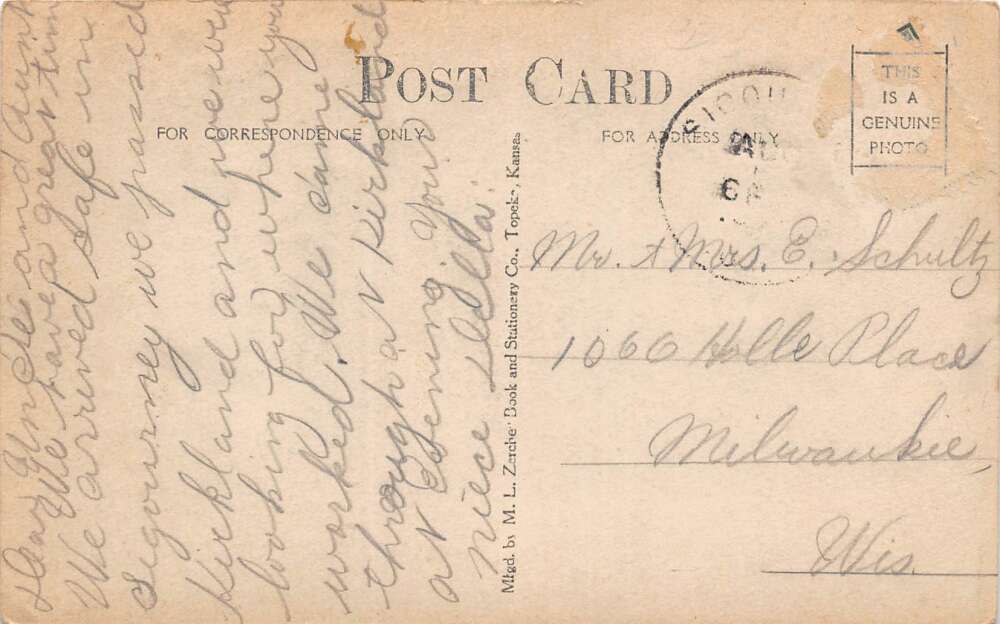 POST CARD
FOR CORRESPONDENCE ONLY
FOR ADDRESS ONLY
THIS
IS A
GENUINE
PHOTO
Dear Uncle and Aunt
We have a great time
We arrived safe in
Sigourney we passed
Kirkland and we were
looking for where you
worked. We came
through at Kirkland
at Evening Your
niece Lilla.
Mfgd. by M. L. Zercher Book and Stationery Co., Topeka, Kansas
Mr. & Mrs. E. Schultz
1060 Holle Place
Milwaukie,
Wis.